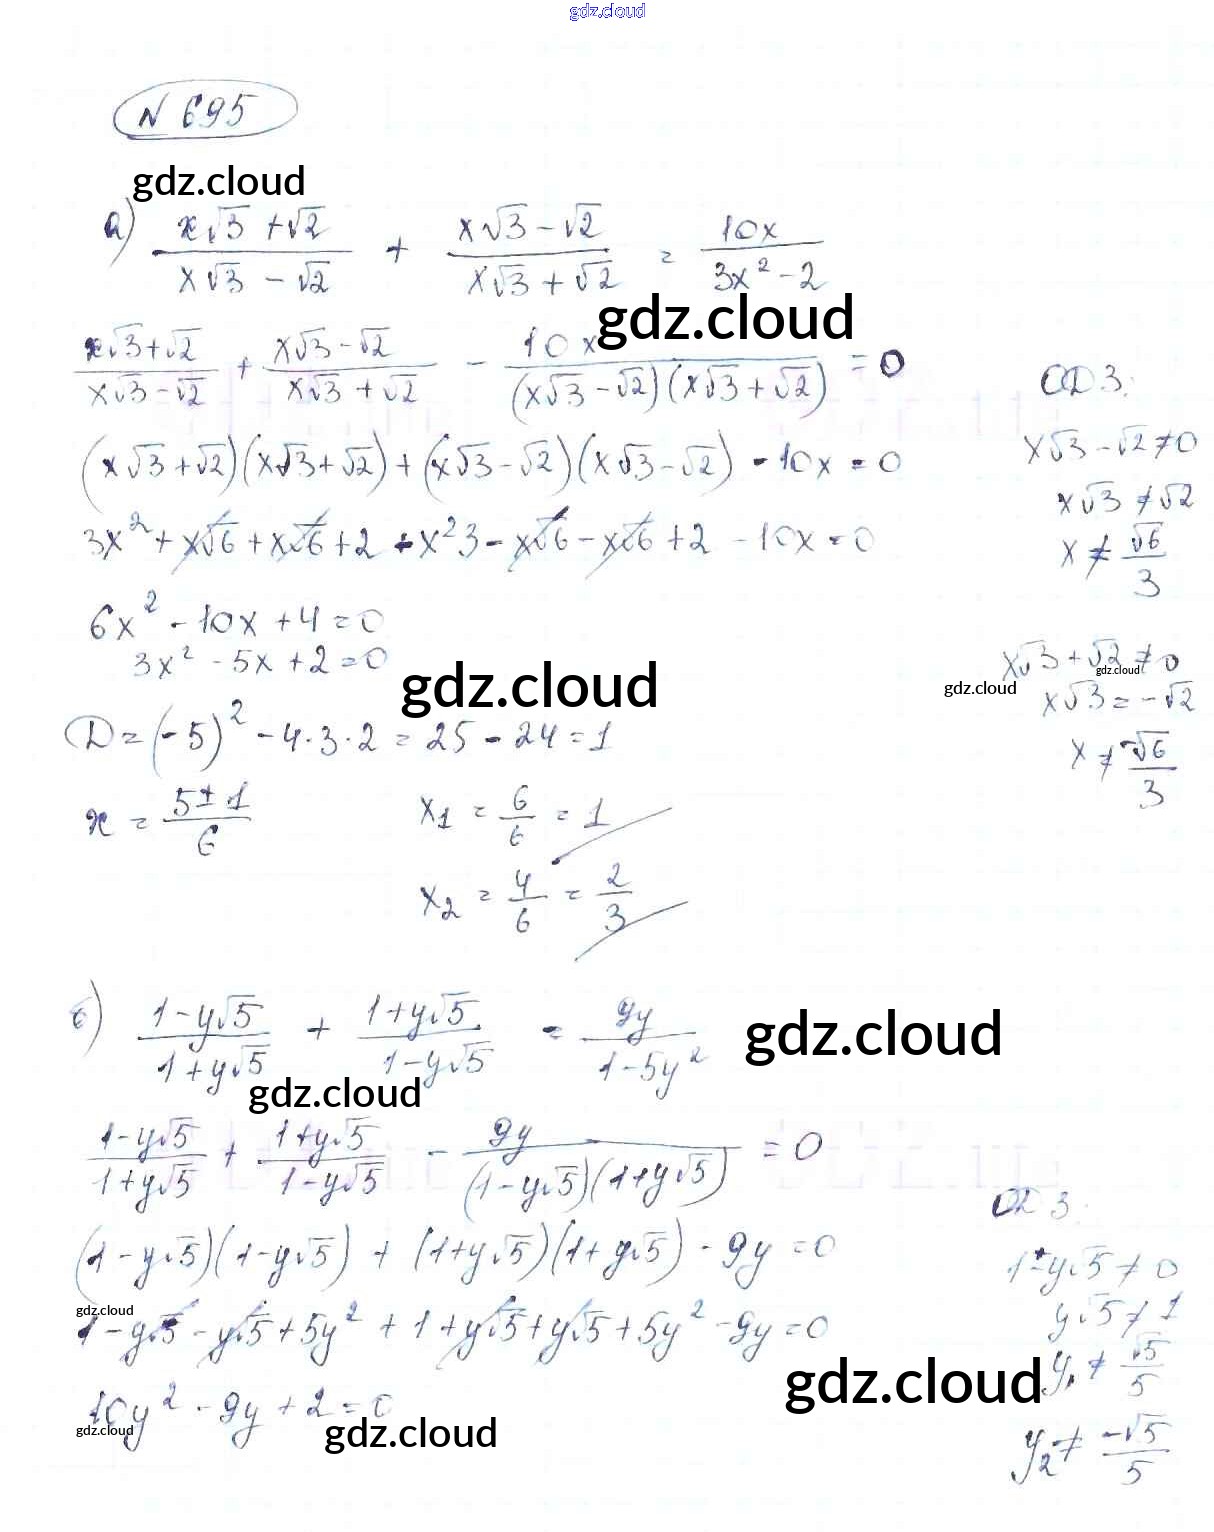 gdz.cloud
N 695
gdz.cloud
а) (x√3 + √2)/(x√3 - √2) + (x√3 - √2)/(x√3 + √2) = 10x/(3x² - 2)
gdz.cloud
(x√3 + √2)/(x√3 - √2) + (x√3 - √2)/(x√3 + √2) - 10x/((x√3 - √2)(x√3 + √2)) = 0
ОДЗ:
(x√3 + √2)(x√3 + √2) + (x√3 - √2)(x√3 - √2) - 10x = 0
x√3 - √2 ≠ 0
x√3 ≠ √2
3x² + x√6 + x√6 + 2 + x²3 - x√6 - x√6 + 2 - 10x = 0
x ≠ √6/3
6x² - 10x + 4 = 0
3x² - 5x + 2 = 0
x√3 + √2 ≠ 0
gdz.cloud
gdz.cloud
gdz.cloud
x√3 = -√2
D = (-5)² - 4·3·2 = 25 - 24 = 1
x ≠ -√6/3
x = (5 ± 1)/6
x₁ = 6/6 = 1
x₂ = 4/6 = 2/3
б) (1 - y√5)/(1 + y√5) + (1 + y√5)/(1 - y√5) = 9y/(1 - 5y²)
gdz.cloud
gdz.cloud
(1 - y√5)/(1 + y√5) + (1 + y√5)/(1 - y√5) - 9y/((1 - y√5)(1 + y√5)) = 0
ОДЗ:
(1 - y√5)(1 - y√5) + (1 + y√5)(1 + y√5) - 9y = 0
1 - y√5 ≠ 0
gdz.cloud
y√5 ≠ 1
1 - y√5 - y√5 + 5y² + 1 + y√5 + y√5 + 5y² - 9y = 0
gdz.cloud
y₁ ≠ √5/5
10y² - 9y + 2 = 0
gdz.cloud
gdz.cloud
y₂ ≠ -√5/5